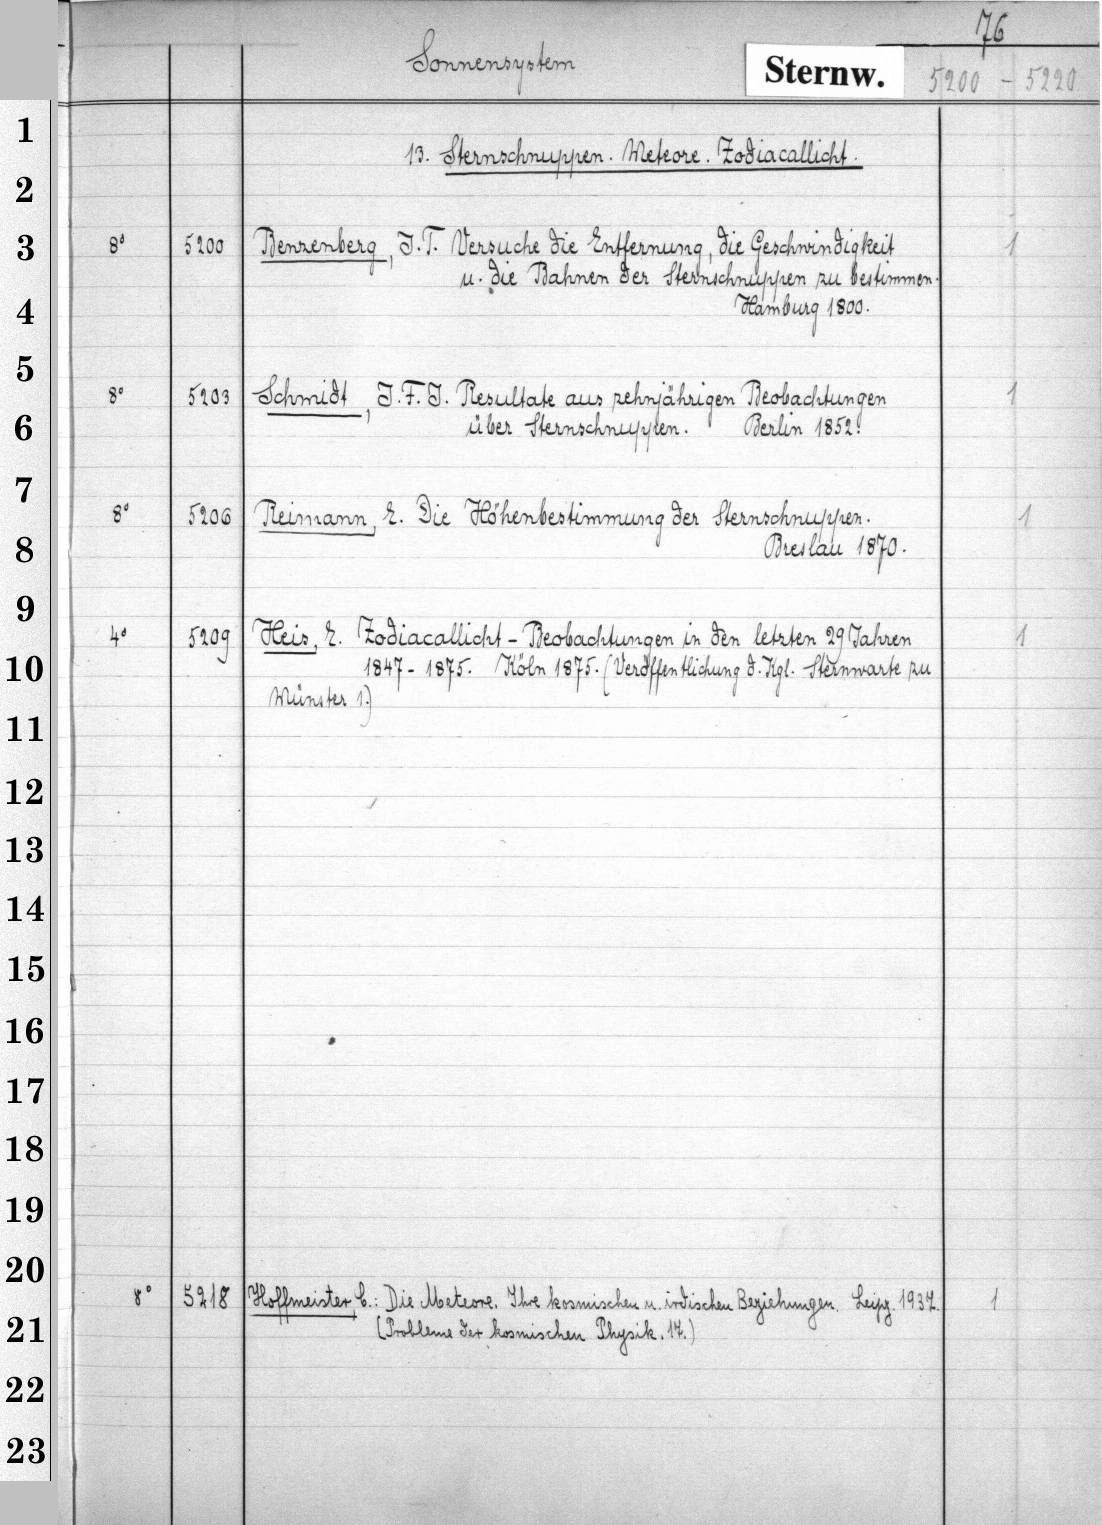 76
Sonnensystem
Sternw.
5200 - 5220
13. Sternschnuppen. Meteore. Zodiacallicht.
8° 5200 Benzenberg, J.T. Versuche die Entfernung, die Geschwindigkeit 1
u. die Bahnen der Sternschnuppen zu bestimmen.
Hamburg 1800.
8° 5203 Schmidt, J.F.J. Resultate aus zehnjährigen Beobachtungen 1
über Sternschnuppen. Berlin 1852.
8° 5206 Reimann, E. Die Höhenbestimmung der Sternschnuppen. 1
Breslau 1870.
4° 5209 Heis, E. Zodiacallicht - Beobachtungen in den letzten 29 Jahren 1
1847 - 1875. Köln 1875. (Veröffentlichung d. Kgl. Sternwarte zu
Münster 1.)
8° 5218 Hoffmeister, C.: Die Meteore. Ihre kosmischen u. irdischen Beziehungen. Leipz. 1937. 1
(Probleme der kosmischen Physik. 17.)
1
2
3
4
5
6
7
8
9
10
11
12
13
14
15
16
17
18
19
20
21
22
23